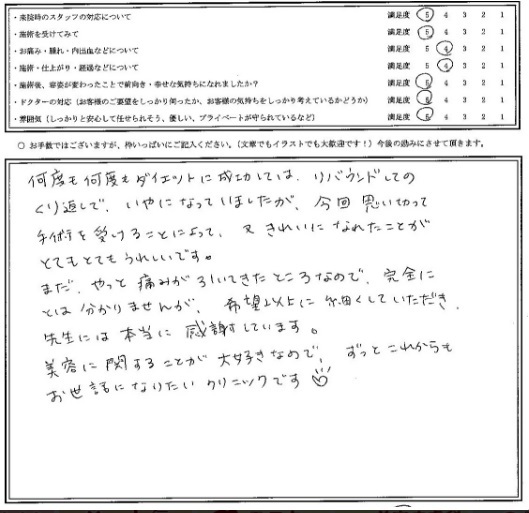 ・来院時のスタッフの対応について 満足度 5 4 3 2 1
・施術を受けてみて 満足度 5 4 3 2 1
・お痛み・腫れ・内出血などについて 満足度 5 4 3 2 1
・施術・仕上がり・経過などについて 満足度 5 4 3 2 1
・施術後、容姿が変わったことで前向き・幸せな気持ちになれましたか？ 満足度 5 4 3 2 1
・ドクターの対応（お客様のご要望をしっかり伺ったか、お客様の気持ちをしっかり考えているかどうか） 満足度 5 4 3 2 1
・雰囲気（しっかりと安心して任せられそう、優しい、プライベートが守られているなど） 満足度 5 4 3 2 1
○ お手数ではございますが、枠いっぱいにご記入ください。（文章でもイラストでも大歓迎です！）今後の励みにさせて頂きます。
何度も何度もダイエットに成功しては、リバウンドしての
くり返しで、いやになっていましたが、今回 思いきって
手術を受けることによって、又 きれいになれたことが
とてもとてもうれしいです。
まだ、やっと 痛みが引いてきたところなので、完全に
とは 分かりませんが、希望以上に 細くしていただき、
先生には 本当に 感謝しています。
美容に 関することが 大好きなので、ずっと これからも
お世話になりたい クリニックです